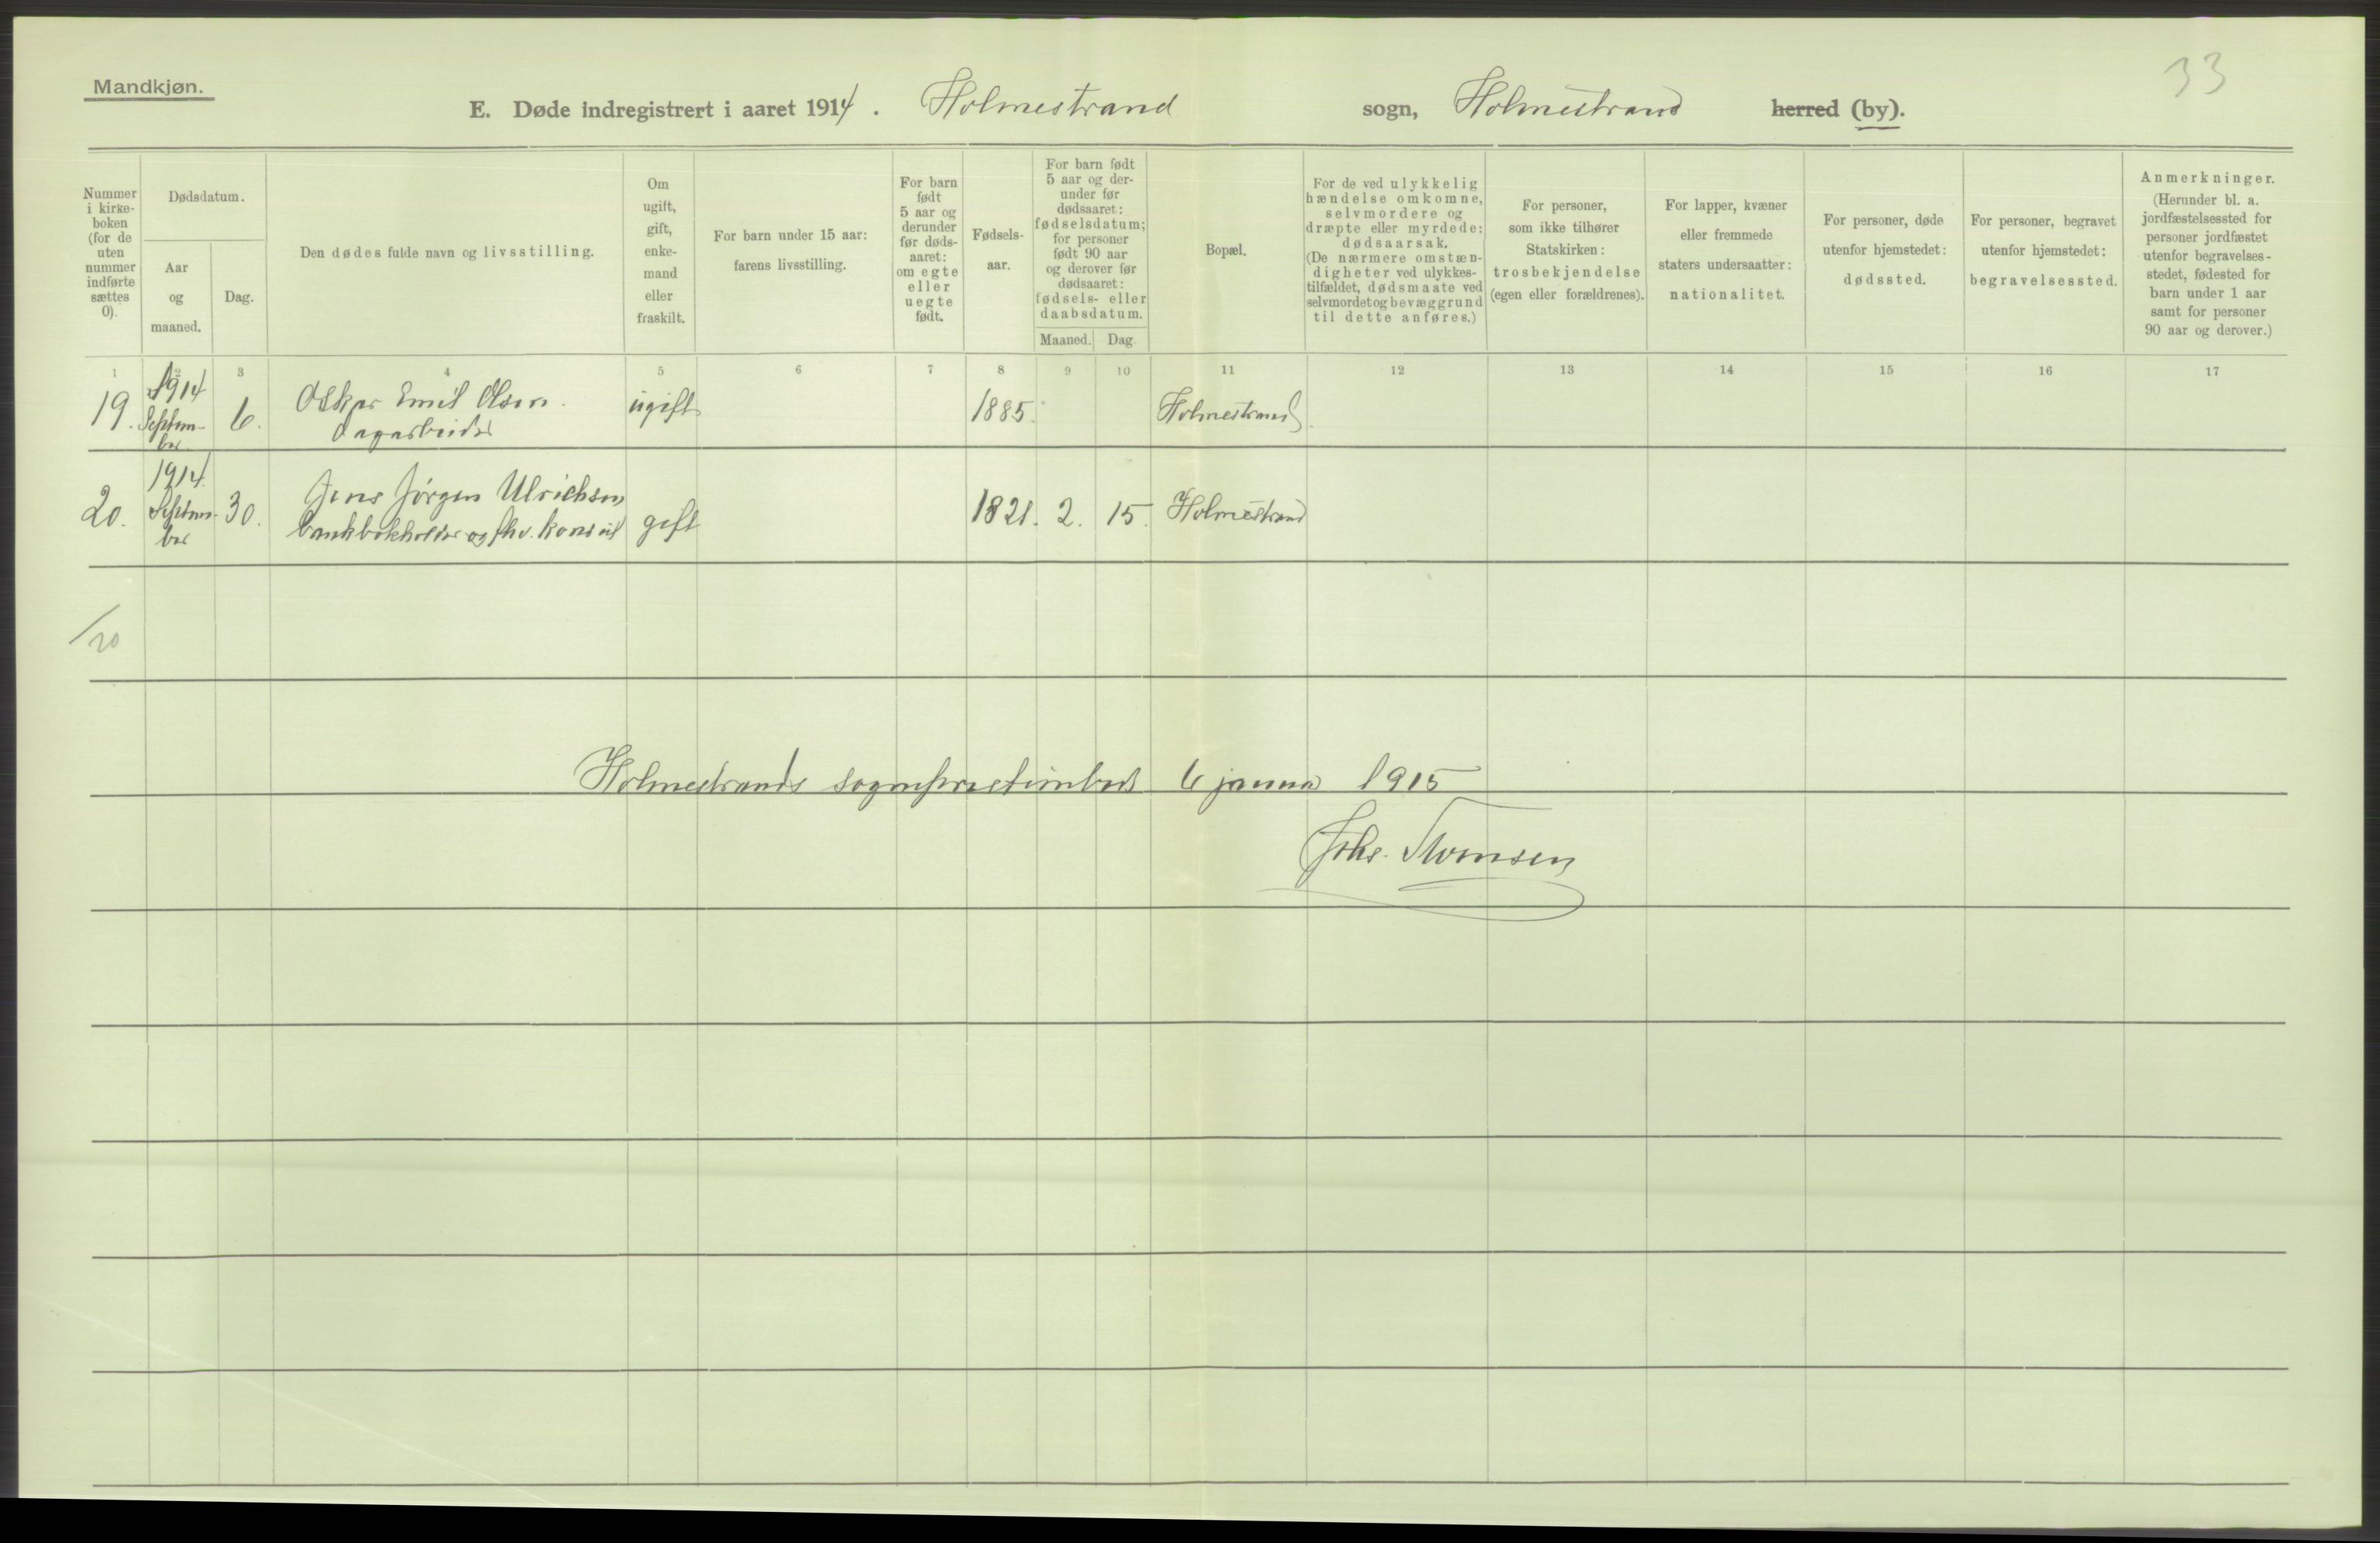 33
Mandkjøn.
E. Døde indregistrert i aaret 1914. Holmestrand sogn, Holmestrand herred (by).
Nummer i kirke- boken (for de uten nummer indførte sættes 0).
Dødsdatum.
Aar og maaned.
Dag.
Den dødes fulde navn og livsstilling.
Om ugift, gift, enke- mand eller fraskilt.
For barn under 15 aar: farens livsstilling.
For barn født 5 aar og derunder før døds- aaret: om egte eller uegte født.
Fødsels- aar.
For barn født 5 aar og der- under før dødsaaret: fødselsdatum; for personer født 90 aar og derover før dødsaaret: fødsels- eller daabsdatum.
Maaned. Dag
Bopæl.
For de ved ulykkelig hændelse omkomne, selvmordere og dræpte eller myrdede: dødsaarsak. (De nærmere omstæn- digheter ved ulykkes- tilfældet, dødsmaate ved selvmordet og bevæggrund til dette anføres.)
For personer, som ikke tilhører Statskirken: trosbekjendelse (egen eller forældrenes).
For lapper, kvæner eller fremmede staters undersaatter: nationalitet.
For personer, døde utenfor hjemstedet: dødssted.
For personer, begravet utenfor hjemstedet: begravelsessted.
Anmerkninger. (Herunder bl. a. jordfæstelsessted for personer jordfæstet utenfor begravelses- stedet, fødested for barn under 1 aar samt for personer 90 aar og derover.)
1 2 3 4 5 6 7 8 9 10 11 12 13 14 15 16 17
19. 1914 Septem- ber 6. Oskar Emil Olsen. dagarbeider ugift 1885. Holmestrand.
20. 1914. Septem- ber 30. Jens Jørgen Ulrichsen bankbokholder og fhv. konsul gift 1821. 2. 15. Holmestrand
/20
Holmestrands sogneprestembed 6 januar 1915
Johs.